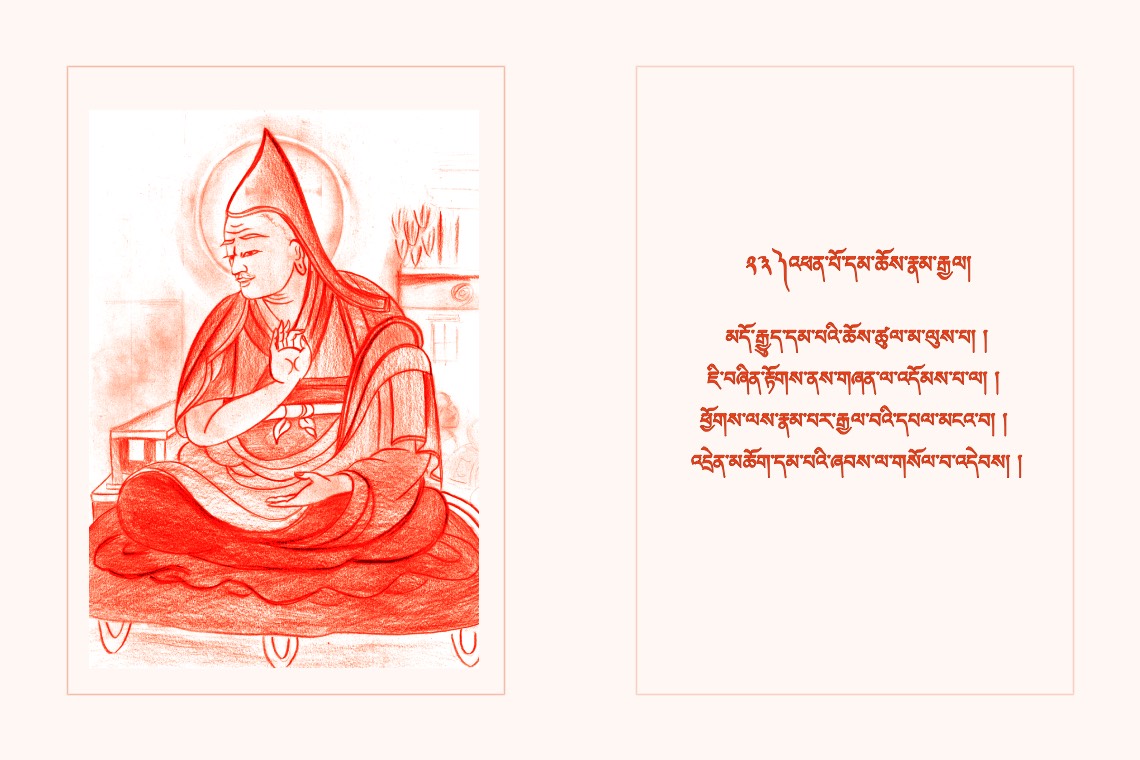 ༢༣ ༽འཕན་པོ་དམ་ཆོས་རྣམ་རྒྱལ།
མདོ་རྒྱུད་དམ་པའི་ཆོས་ཚུལ་མ་ལུས་བ། །
ཇི་བཞིན་རྟོགས་ནས་གཞན་ལ་འདོམས་པ་ལ། །
ཕྱོགས་ལས་རྣམ་པར་རྒྱལ་བའི་དཔལ་མངའ་བ། །
འདྲེན་མཆོག་དམ་པའི་ཞབས་ལ་གསོལ་བ་འདེབས། །